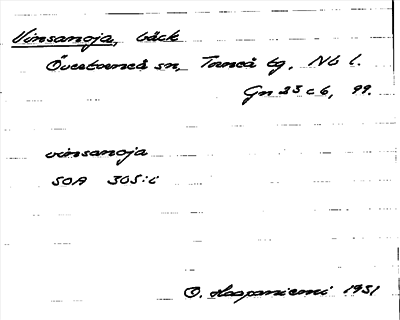 Vinsanoja, bäck
Övertorneå sn, Torneå tg, Nb l.
Gn 23 c 6, 99.
vinsanoja
SOA 305:i
O. Haapaniemi 1931